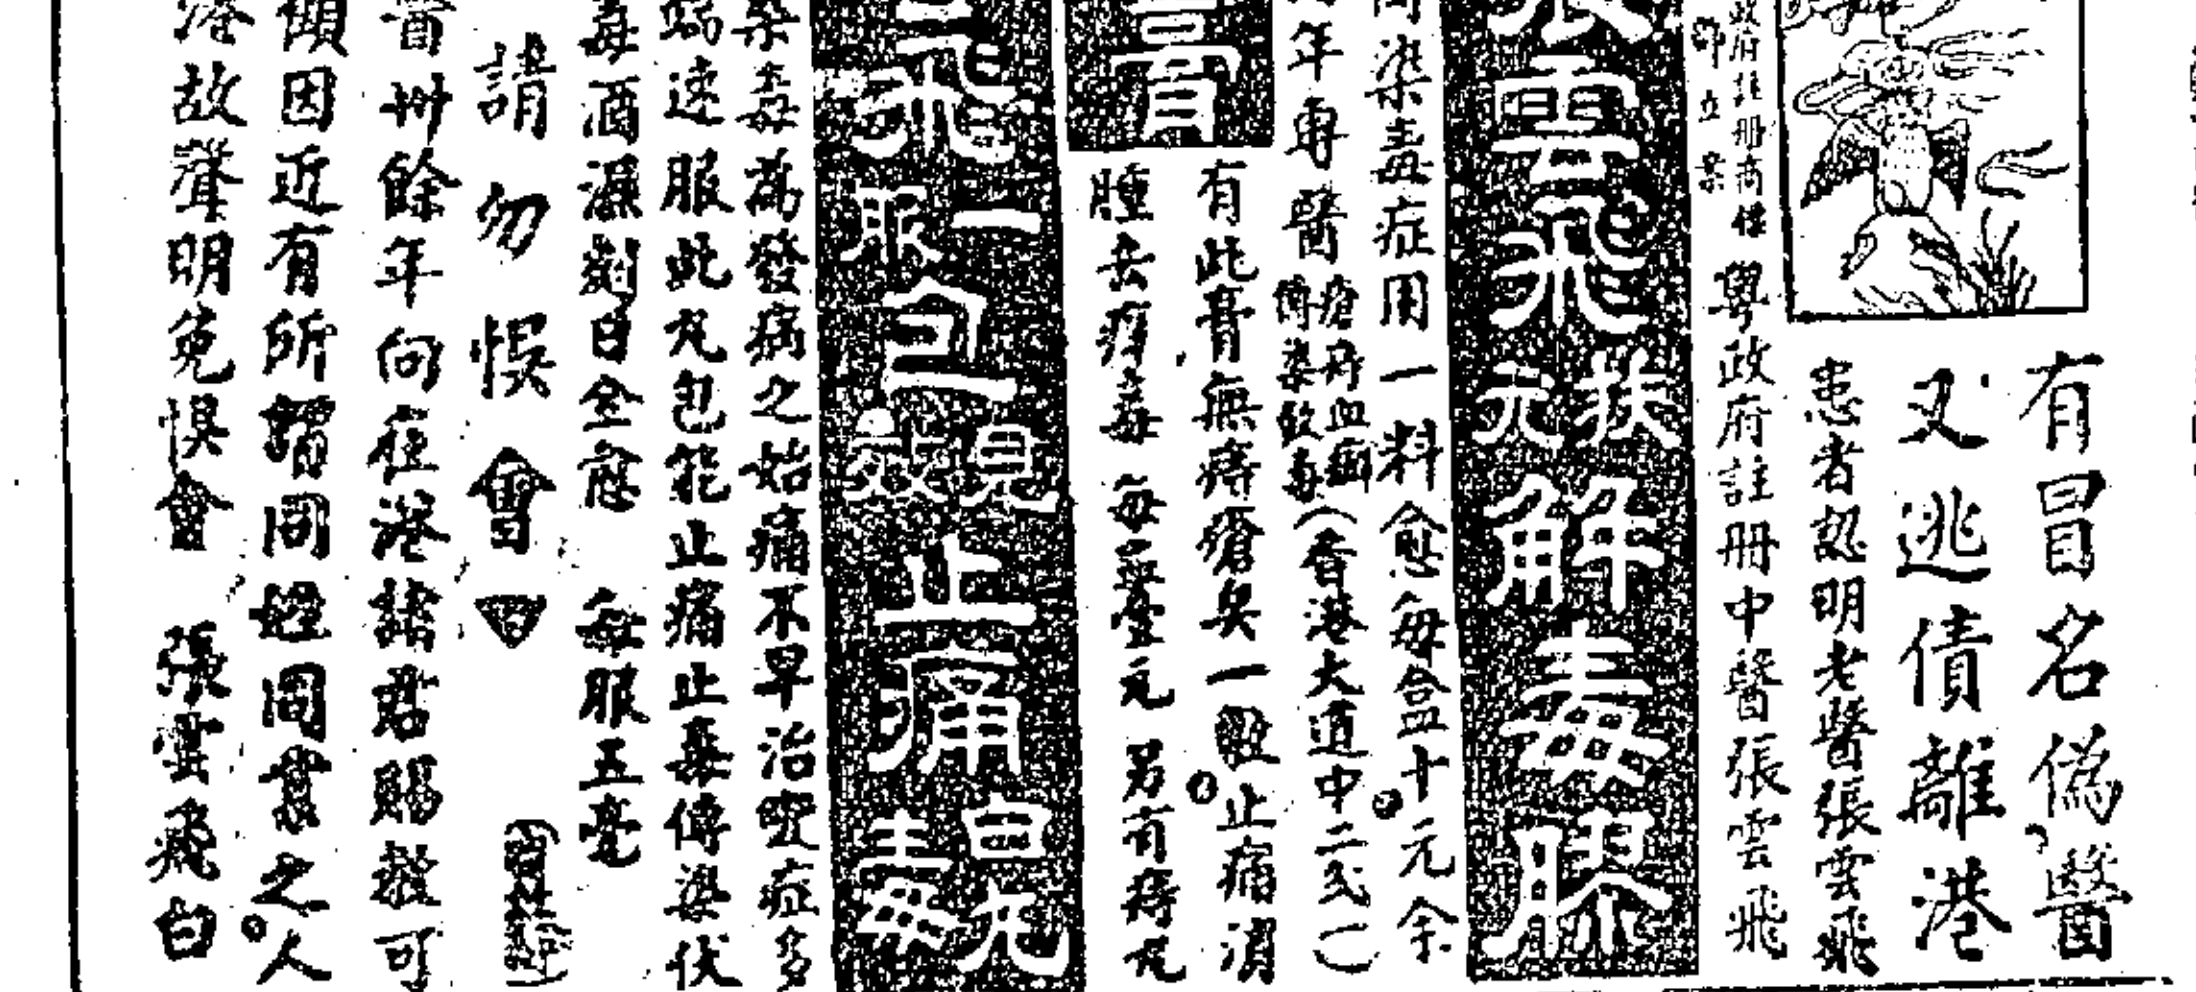 有冒名偽醫
又逃債離港
患者認明老醫張雲飛
政府註冊商標
立案
粵政府註冊中醫張雲飛
雲飛扶元解毒膠
染毒症用一料愈每盒十元余
年專醫
瘡疥血癬
傳染致毒
（香港大道中二
膏
有此膏無痔瘡矣一
止痛消
腫去痒毒 每壹元 另有痔丸
飛一服包見效止痛毒丸
染毒為發病之始痛不早治
症多
速服此丸包能止痛止毒傳染伏
毒酒濕剋日全愈 每服五毫
請勿悞會
卅餘年向在港諸君賜教可
因近有所謂同姓同業之人
港故聲明免悞會 張雲飛白